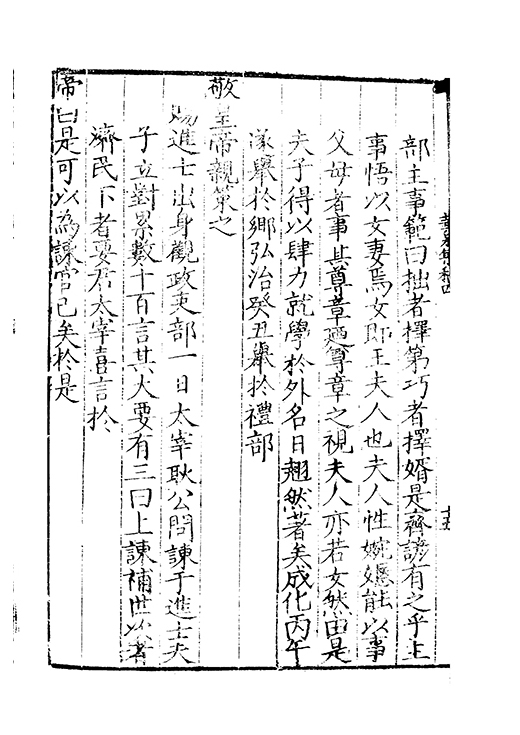 部主事範曰拙者擇第巧者擇婿是齊諺有之乎主
事悟以女妻焉女即王夫人也夫人性婉嫕能以事
父母者事其尊章迺尊章之視夫人亦若女然由是
夫子得以肆力就學於外名日翹然著矣成化丙午
遂舉於鄉弘治癸丑舉於禮部
敬皇帝親策之
賜進士出身觀政吏部一日太宰耿公問諫于進士夫
子立對累數十百言其大要有三曰上諫補世以者
濟民下者要君太宰喜言於
帝曰是可以為諫官已矣於是
十五